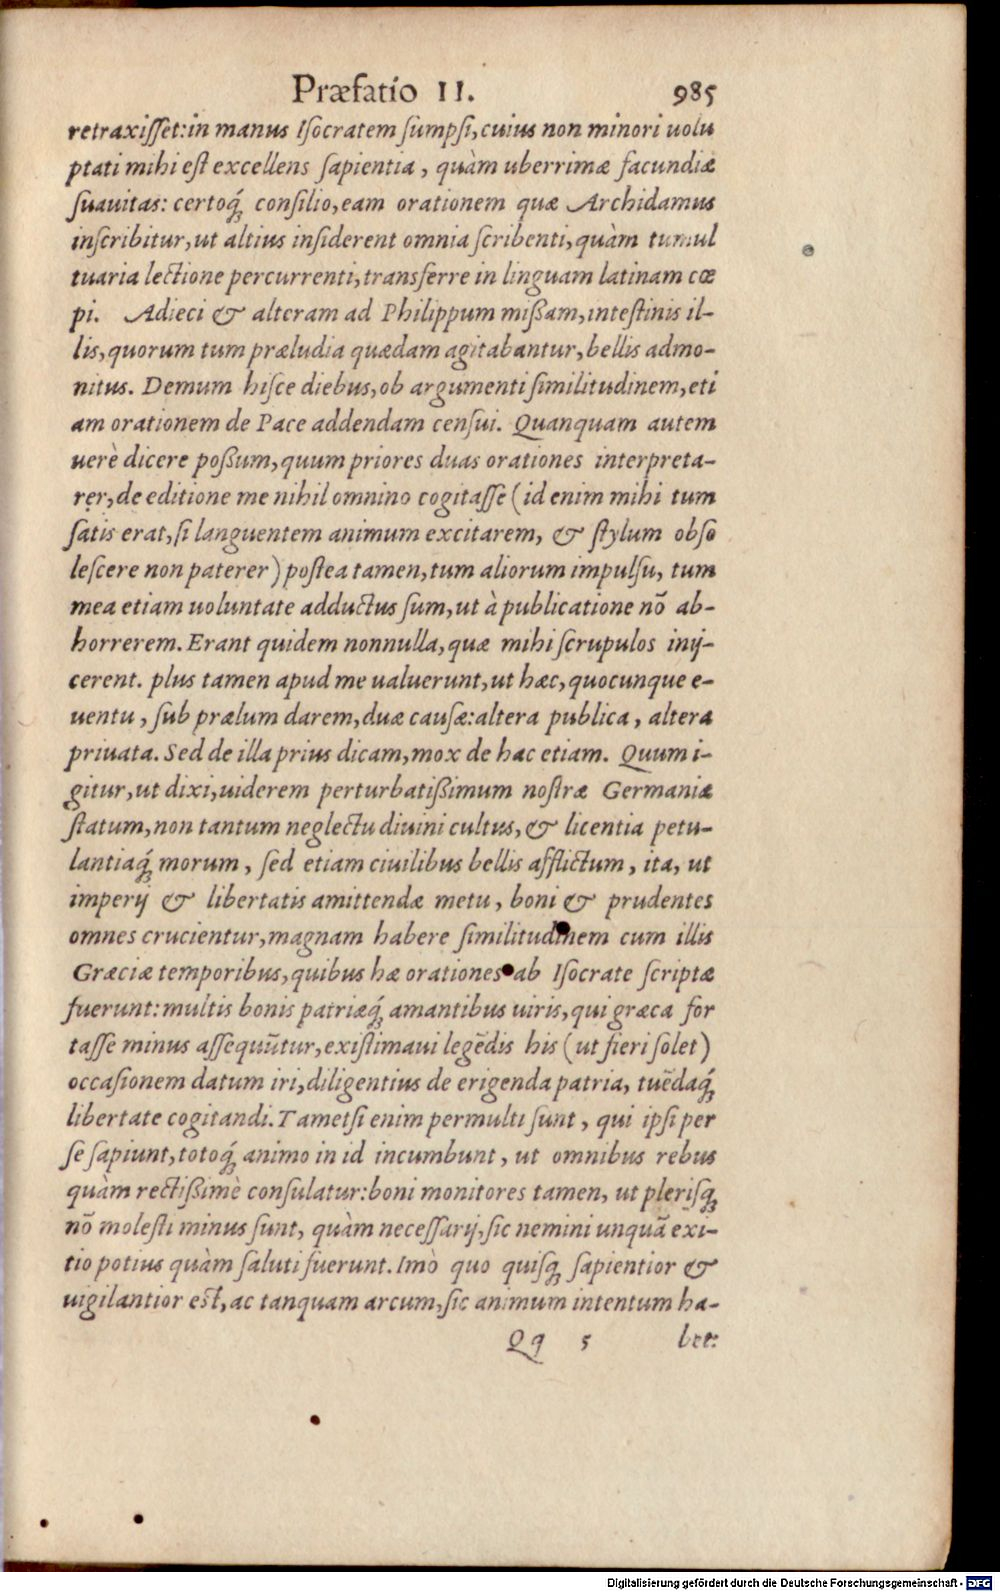 Præfatio II. 985
retraxisset: in manus Isocratem sumpsi, cuius non minori uolu
ptati mihi est excellens sapientia, quàm uberrimæ facundiæ
suauitas: certoq́; consilio, eam orationem quæ Archidamus
inscribitur, ut altius insiderent omnia scribenti, quàm tumul
tuaria lectione percurrenti, transferre in linguam latinam cœ
pi. Adieci & alteram ad Philippum mißam, intestinis il-
lis, quorum tum præludia quædam agitabantur, bellis admo-
nitus. Demum hisce diebus, ob argumenti similitudinem, eti
am orationem de Pace addendam censui. Quanquam autem
uerè dicere poßum, quum priores duas orationes interpreta-
rer, de editione me nihil omnino cogitasse (id enim mihi tum
satis erat, si languentem animum excitarem, & stylum obso
lescere non paterer) postea tamen, tum aliorum impulsu, tum
mea etiam uoluntate adductus sum, ut à publicatione nō ab-
horrerem. Erant quidem nonnulla, quæ mihi scrupulos inij-
cerent. plus tamen apud me ualuerunt, ut hæc, quocunque e-
uentu, sub prælum darem, duæ causæ: altera publica, altera
priuata. Sed de illa prius dicam, mox de hac etiam. Quum i-
gitur, ut dixi, uiderem perturbatißimum nostræ Germaniæ
statum, non tantum neglectu diuini cultus, & licentia petu-
lantiaq́; morum, sed etiam ciuilibus bellis afflictum, ita, ut
imperij & libertatis amittendæ metu, boni & prudentes
omnes crucientur, magnam habere similitudinem cum illis
Græciæ temporibus, quibus hæ orationes ab Isocrate scriptæ
fuerunt: multis bonis patriæq́; amantibus uiris, qui græca for
tasse minus assequūtur, existimaui legēdis his (ut fieri solet)
occasionem datum iri, diligentius de erigenda patria, tuēdaq́;
libertate cogitandi. Tametsi enim permulti sunt, qui ipsi per
se sapiunt, totoq́; animo in id incumbunt, ut omnibus rebus
quàm rectißimè consulatur: boni monitores tamen, ut plerisq;
nō molesti minus sunt, quàm necessarij, sic nemini unquā exi-
tio potius quàm saluti fuerunt. Imò quo quisq; sapientior &
uigilantior est, ac tanquam arcum, sic animum intentum ha-
Qq 5 bet:
Digitalisierung gefördert durch die Deutsche Forschungsgemeinschaft - DFG